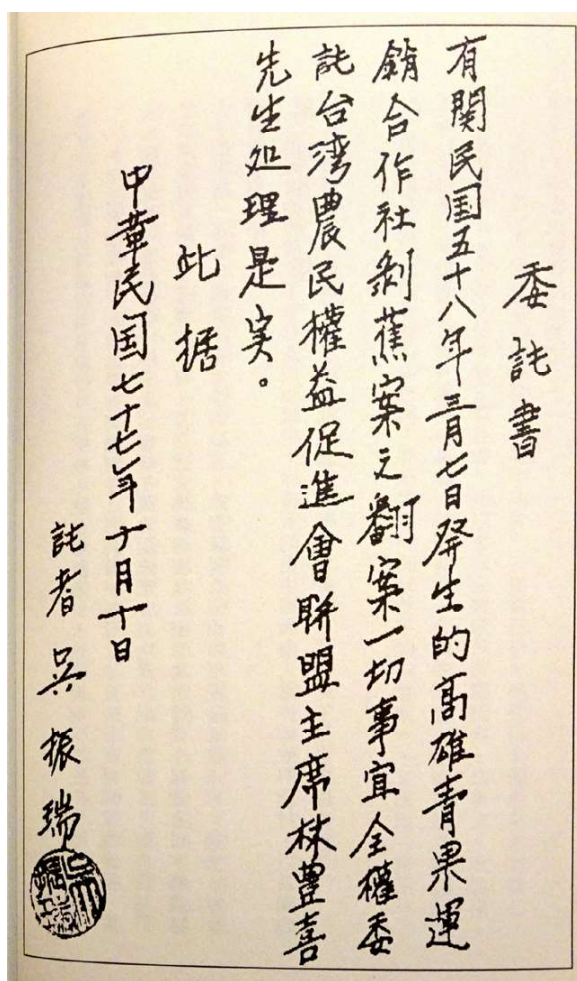 委託書
有関民国五十八年三月七日発生的高雄青果運
銷合作社剝蕉案之翻案一切事宜全權委
託台湾農民權益促進會聯盟主席林豊喜
先生処理是实。
此据
中華民国七十七年十月十日
託者吳振瑞